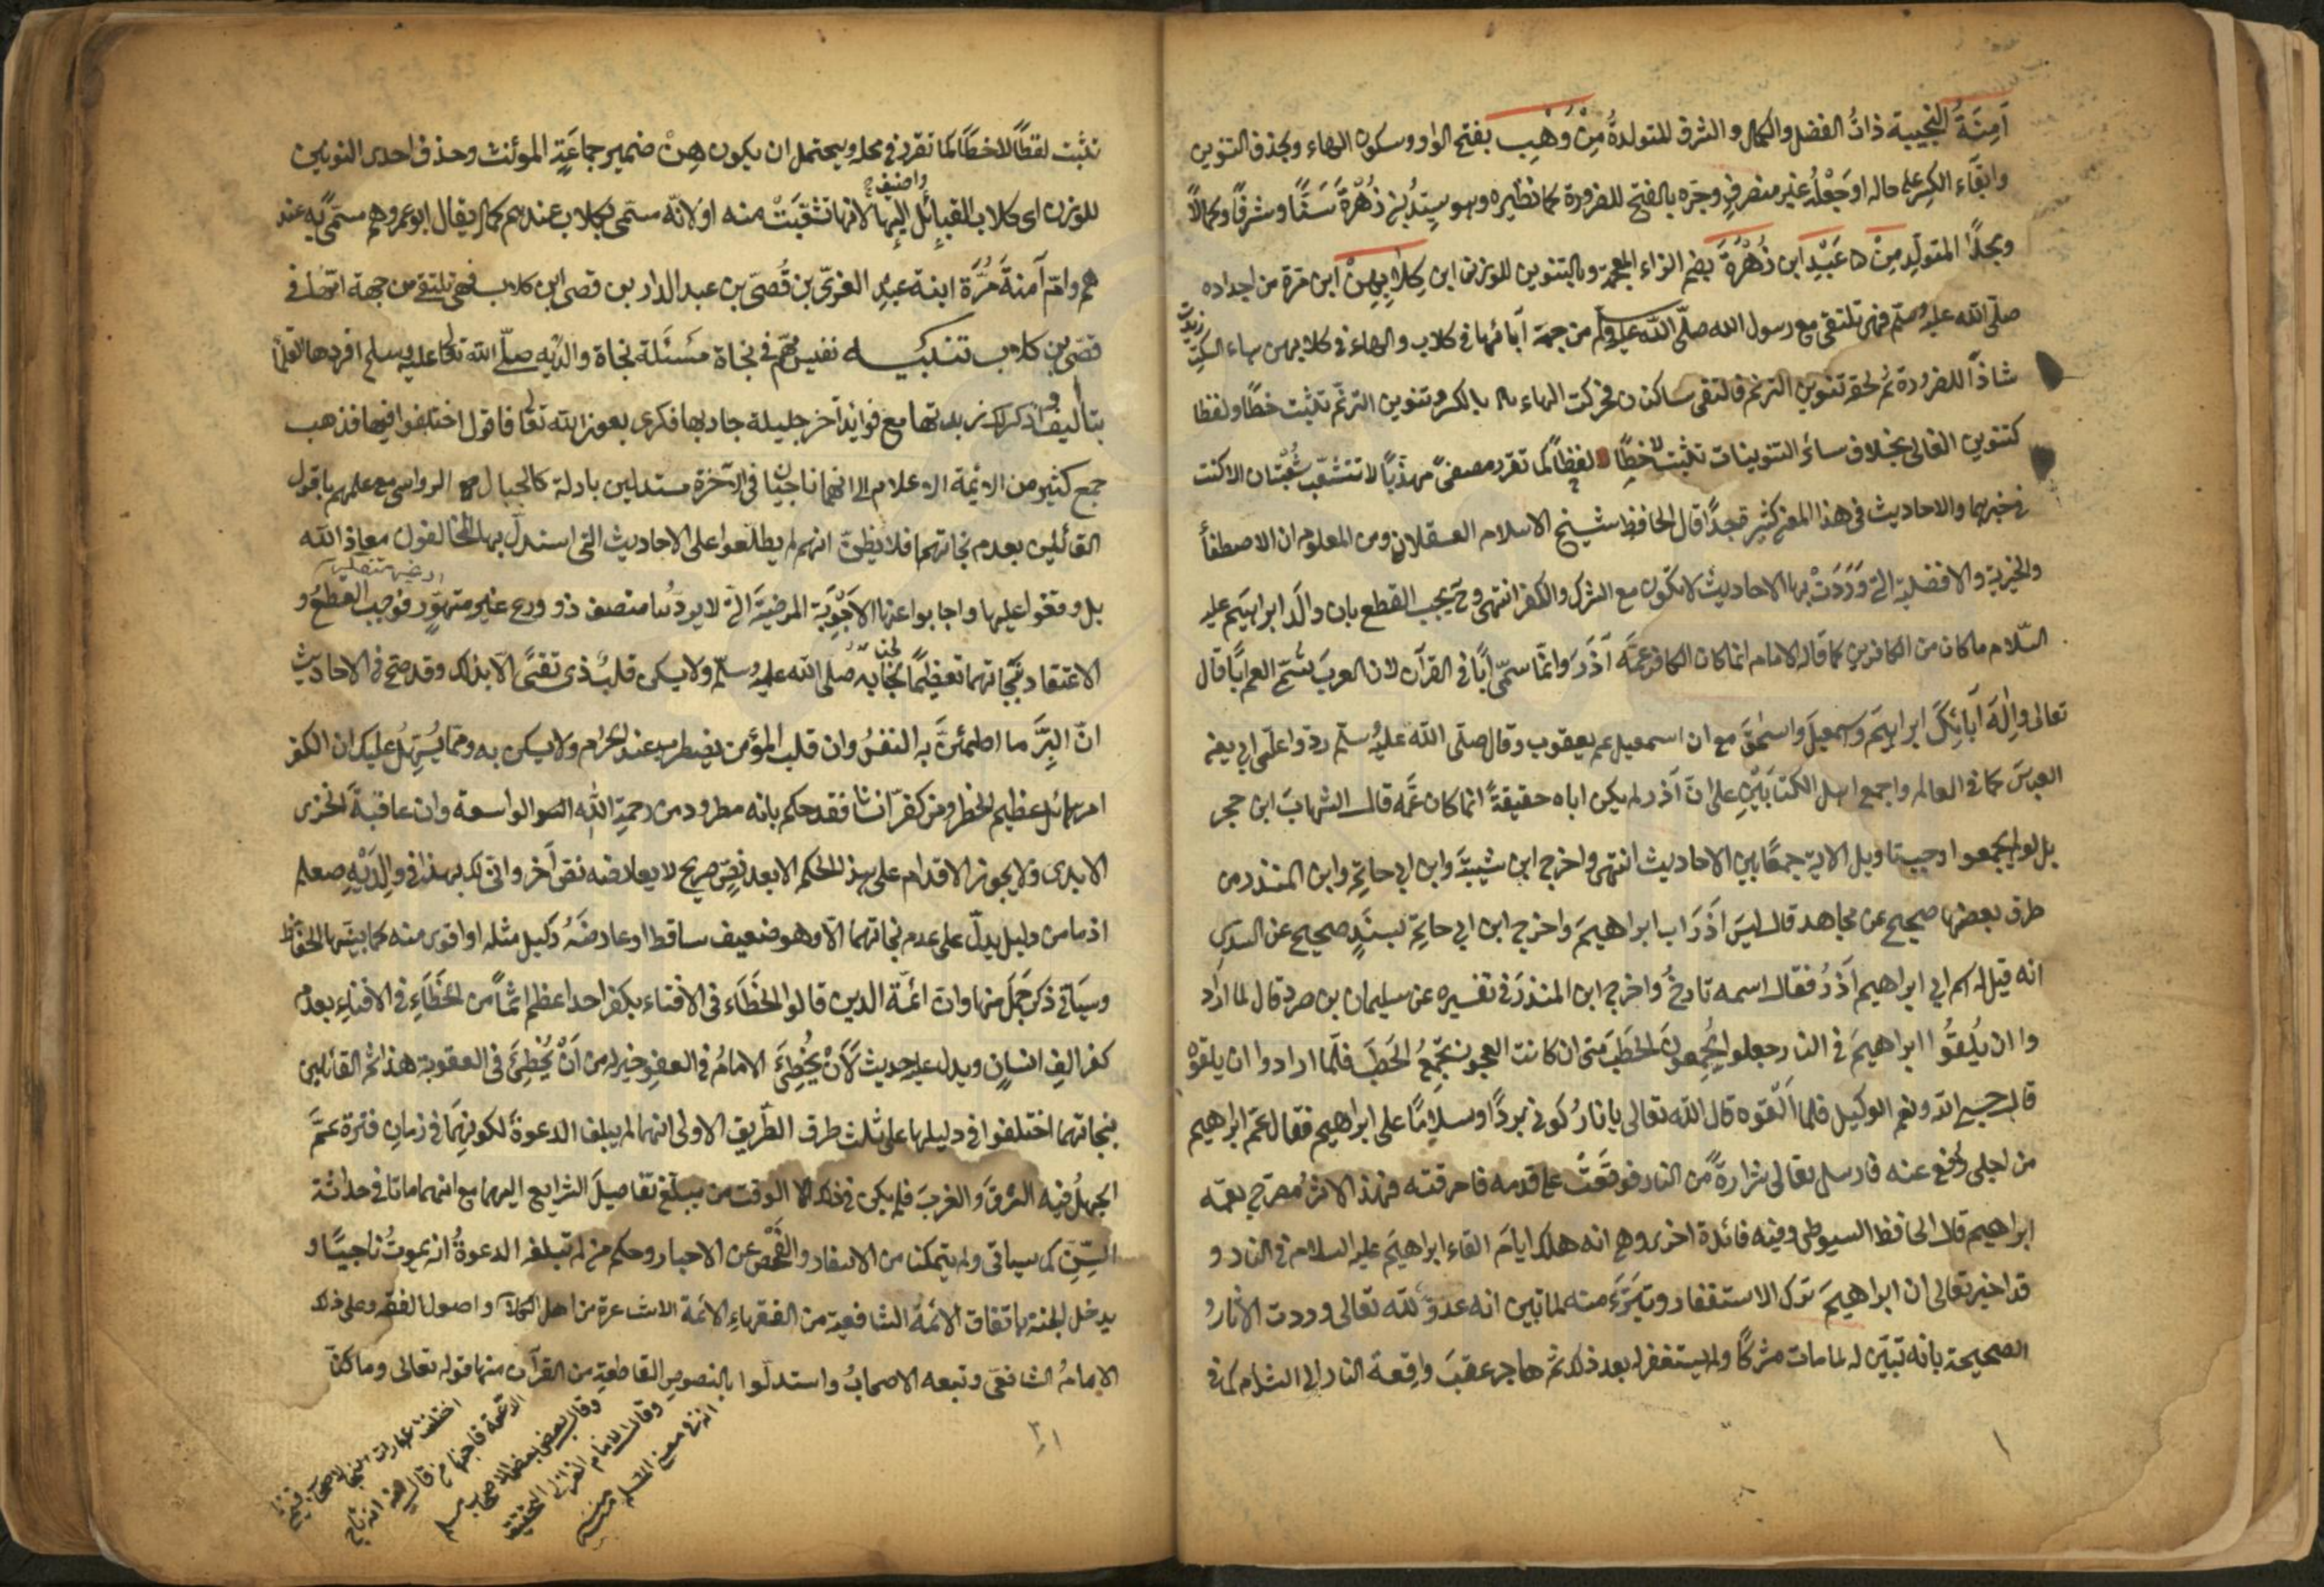 آمِنَةُ النجيبة ذاتُ الفضل والكمال والشرف للمتولدةُ مِنْ وَهْبِ بفتح الواو وسكون الهاء وبحذف التنوين
وابقاء الكسر على حاله او جَعْلُه غير منصرفٍ وجره بالفتح للضرورة كما نظيره وهو سيّدُ بنى زُهْرَة نَسَبًا وشرفًا وكمالاً
ومجدًا المتولّدِ مِنْ عَبْدِ ابن زُهْرَةَ بضم الزاء المعجمة وبالتنوين للوزن ابن كِلابِهِنْ ابن مرة من اجداده
صلى الله عليه وسلم فهى تلتقى مع رسول الله صلّى الله عليه وسلم من جهة آبائها فى كلاب والهاء فى كلابهن هاء السكت
زيدت
شاذاً للضرورة ثم لحقه تنوين الترنم فالتقى ساكنان فحركت الهاء بالكسر وتنوين الترنّم تثبت خطًا ولفظا
كتنوين الغالى بخلاف سائر التنوينات تثبت لا خطًا لفظاً كما تقرر مصفىً مهذّبًا لا تتشعّب شُعْبَتان الا كنت
فى خيرهما والاحاديث فى هذا المعنى كثير قجدًا قال الحافظ شيخ الاسلام العسقلانى ومن المعلوم ان الاصطفأ
والخيرية والافضلية التى وَرَدَتْ بها الاحاديث لا تكون مع الشرك والكفر انتهى وح يجب القطع بان والَد ابراهيم عليه
السّلام ما كان من الكافرين كما قاله الامام انما كان الكافر عمَّه آذَرَ وانمّا سمّى ابًا فى القرآن لان العرب تسمّى العم ابًا قال
تعالى وإلهَ آبَائِكَ ابراهيمَ واسمعيلَ واسحٰقَ مع ان اسمعيل عم يعقوب وقال صلّى الله عليه وسلّم ردوا علّى ابى يعنى
العباسَ كما فى العالم واجمع اهل الكتابَيْنِ على انّ آذر لم يكن اباه حقيقةً انما كان عَمَّه قال الشهابَ ابن حجر
بل لو لم يجمعوا وجب تاويل الاية جمعًا بين الاحاديث انتهى واخرج ابن شيبةَ وابن ابى حاتِمٍ وابن المنذر من
طرف بعضها صحيح عن مجاهد قال ليسَ آذَرَ اب ابراهيمَ واخرج ابن ابى حاتِمٍ بسَنَدٍ صحيح عن السدّىِ
انه قيل له اسم ابى ابراهيم آذَرُ فقال اسمه تارخُ واخرج ابن المنذرَ فى تفسيره عن سليمان بن صرد قال لما اراد
وا ان يُلقُوا ابراهيمَ فى النار جعلوا يُجمعونَ الحَطَبَ حتى ان كانت العجوز تجمَعُ الحَطَبَ فلّما ارادوا ان يلقوه
قال حسبى الله ونعم الوكيل فلما اَلْقوه قال الله تعالى يا نارُ كونى بردًا وسلامًا على ابراهيم فقال عمّ ابراهيم
من اجلى دُفع عنه فارسل تعالى شرارةً من النار فوقعَتْ على قدمه فاحرقته فهذا الاثرُ مصرّح بعمّه
ابراهيم قال الحافظ السيوطى وفيه فائدة اخرى وهى انه هلك ايامَ القاء ابراهيمَ عليه السلام فى النار و
قد اخبر تعالى ان ابراهيمَ ترك الاستغفار وتبَرَّءَ منه لما تبين انه عدوّ لله تعالى ووردت الآثارُ
الصحيحة بانه تبيّن له لما مات مشركًا ولم يستغفر له بعد ذلك ثم هاجر عقبَ واقعة النار الى الشام كما فى
تثبت لفظاً لا خطّاً كما تقرر فى محله ويحتمل ان يكون هِنْ ضمير جماعَةِ المؤنث وحذف احدى النونين
واضيف
للوزن اى كلاب القبائل اليها لانها تشعّبَتْ منه او لانّه مسمّى بكلاب عندهم كما يقال ابو عمرو هم مسمّىً به عند
هم وامّ آمنةَ مُرَّة ابنة عبدِ العزىّ بن قُصَىّ بن عبد الدار بن قصى ابن كلاب فهى تلتقى من جهة امّها فى
قصى بن كلاب تنبيه نفيس مهّم فى نجاة مسئلة نجاة والدَيْه صلّى الله تعالى عليه وسلم افردها العلمأ
بتأليف واذكر لك زبدتها مع فوائد اُخر جليلة جاد بها فكرى بعون الله تعالى فاقول اختلفوا فيها فذهب
جمع كثير من الائمة الاعلام الى انهما ناجيان فى الآخرة مستدلين بادلة كالجبال الرواسى مع علمهم باقول
القائلين بعدم نجاتهما فلا يظنّ انهم لم يطلّعوا على الاحاديث التى استدلّ بها المخالفون معاذ الله
بل وقفوا عليها واجابوا عنها الاَجْوِبَة المرضيّةَ التى لا يردّها منصف ذو ورع غير متهوّر فوجب القطع و
الاعتقاد بنجاتهما تعظيمًا لجنابه صلى الله عليه وسلّم ولا يسكن قلبُ ذى تقىً الاّ بذلك وقد صحّ فى الاحاديث
انّ البِرَّ ما اطمئنَّ به النفسُ وان قلب المؤمن يضطرب عند الحرام ولا يسكن به ومما يُسَهِلُ عليك ان الكفر
امر هائل عظيم الخطر ومن كفّر انسانًا فقد حكم بانه مطرود من رحمة الله الواسعة وان عاقبةَ الخزى
الابدى ولا يجوز الاقدام على هذا الحكم الا بعد نصٍّ صريح لا يعارضه نصّ آخر وانّى لك بهذا فى والِدَيْهِ صلعم
اذ ما من دليل يدلّ على عدم نجاتهما الّا وهو ضعيف ساقط او عارضَهُ دليل مثله او اقوى منه كما بيّنها الحفّاظ
وسيَاتى ذكر جَمَل منها وان ائمّة الدين قالوا الخَطَاء فى الافتاء بكفر احد اعظم اثماً من الخَطَاءِ فى الافتاءِ بعدم
كفر الفِ انسانٍ ويدل عليه حديث لاَنْ يُخْطِئَ الامامُ فى العفوِ خير له من اَنْ يُخْطِئَ فى العقوبة هذا ثم القائلين
بنجاتهما اختلفوا فى دليلها على ثلث طرف الطّريق الاولى انهما لم يبلغ الدعوةُ لكونهما فى زمانِ فترة عمَّ
الجهلُ فيه الشرقَ والغربَ فلم يكن فى ذلك الوقت من يبلّغ تفاصيلَ الشرائع اليهما مع انهما ماتا فى حداثة
السِّنِ كما سياتى ولم يتمكنا من الاسفار والفَحْص عن الاحبار وحكم من لم تبلغه الدعوةُ انه يموتُ ناجيًا و
يدخل الجنة باتفاق الائمة الشافعية من الفقهاءِ الائمة الاشاعرة من اهل الكلام واصول الفقه وعلى ذلك
الامامُ الشافعى وتبعه الاصحابُ واستدلّوا بالنصوص القاطعةِ من القرآن منها قوله تعالى وما كنّا
وقال بعض
وقال الامام الغزالى التحقيق
انه فى معنى المسلم
منه